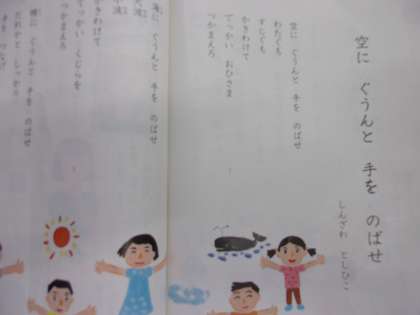 空に ぐうんと 手を のばせ
しんざわ としひこ
空に ぐうんと 手を のばせ
わたぐも
すじぐも
かきわけて
でっかい おひさま
つかまえろ
海に ぐうんと 手を のばせ
かきわけて
でっかい くじらを
つかまえろ
横に ぐうんと 手を のばせ
だれかと しっかり
手を つなげ